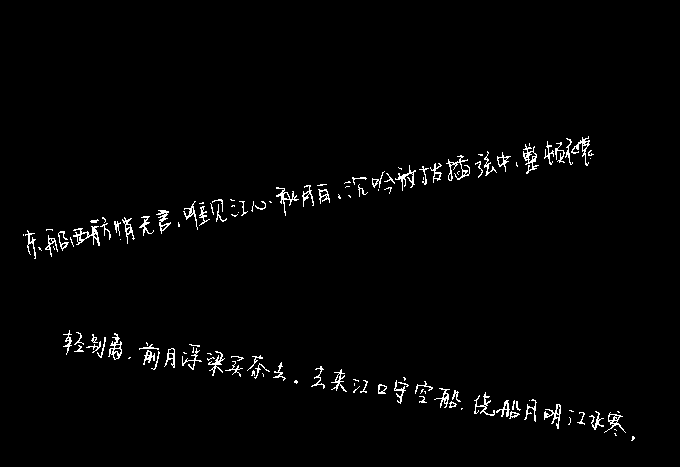 东船西舫悄无言,唯见江心秋月白,沉吟放拨插弦中,整顿衣裳
轻别离,前月浮梁买茶去。去来江口守空船,绕船月明江水寒,